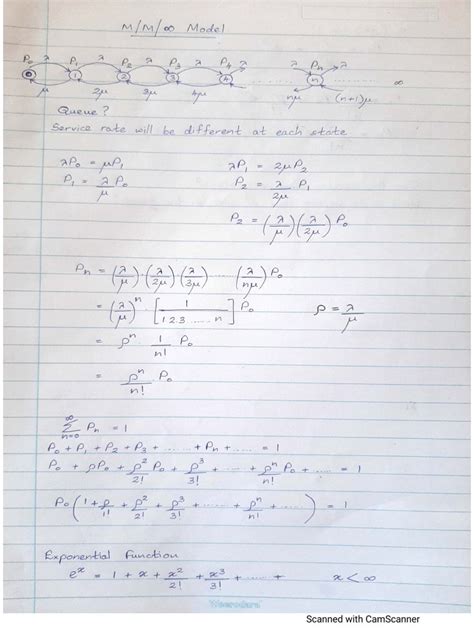 M/M/∞ Model
P₀ λ P₁ λ P₂ λ P₃ λ P₄ λ λ Pₙ λ
0 1 2 3 4 n ∞
μ 2μ 3μ 4μ nμ (n+1)μ
Queue?
Service rate will be different at each state
λP₀ = μP₁ λP₁ = 2μP₂
P₁ = λ/μ P₀ P₂ = λ/2μ P₁
P₂ = (λ/μ)(λ/2μ) P₀
Pₙ = (λ/μ)·(λ/2μ)(λ/3μ) ...... (λ/nμ) P₀
= (λ/μ)ⁿ · [1/1·2·3 ...... n] P₀ ρ = λ/μ
= ρⁿ · 1/n! P₀
= ρⁿ/n! P₀
∞ Σ n=0 Pₙ = 1
P₀ + P₁ + P₂ + P₃ + ...... + Pₙ + ...... = 1
P₀ + ρP₀ + ρ²/2! P₀ + ρ³/3! + ...... + ρⁿ/n! P₀ + ...... = 1
P₀ (1 + ρ/1! + ρ²/2! + ρ³/3! + ...... + ρⁿ/n! + ......) = 1
Exponential Function
eˣ = 1 + x + x²/2! + x³/3! + ...... + x < ∞
Weerodara
Scanned with CamScanner